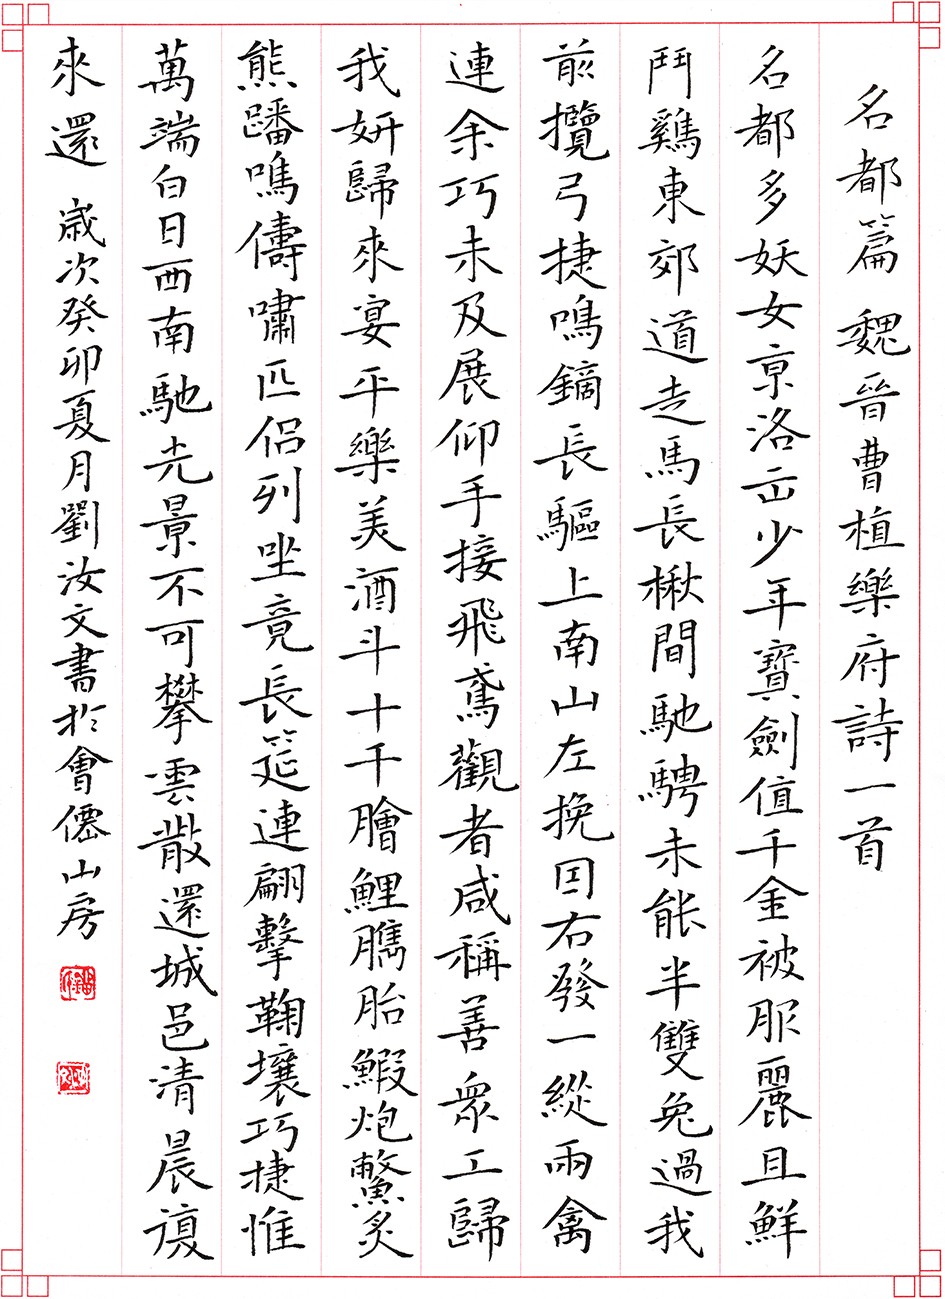 名都篇 魏晉曹植樂府詩一首
名都多妖女京洛出少年寶劍值千金被服麗且鮮
鬥鷄東郊道走馬長楸間馳騁未能半雙兔過我
前攬弓捷鳴鏑長驅上南山左挽因右發一縱兩禽
連余巧未及展仰手接飛鳶觀者咸稱善眾工歸
我妍歸來宴平樂美酒斗十千膾鯉臇胎鰕炮鱉炙
熊蹯鳴儔嘯匹侶列坐竟長筵連翩擊鞠壤巧捷惟
萬端白日西南馳光景不可攀雲散還城邑清晨復
來還 歲次癸卯夏月劉汝文書於會僊山房